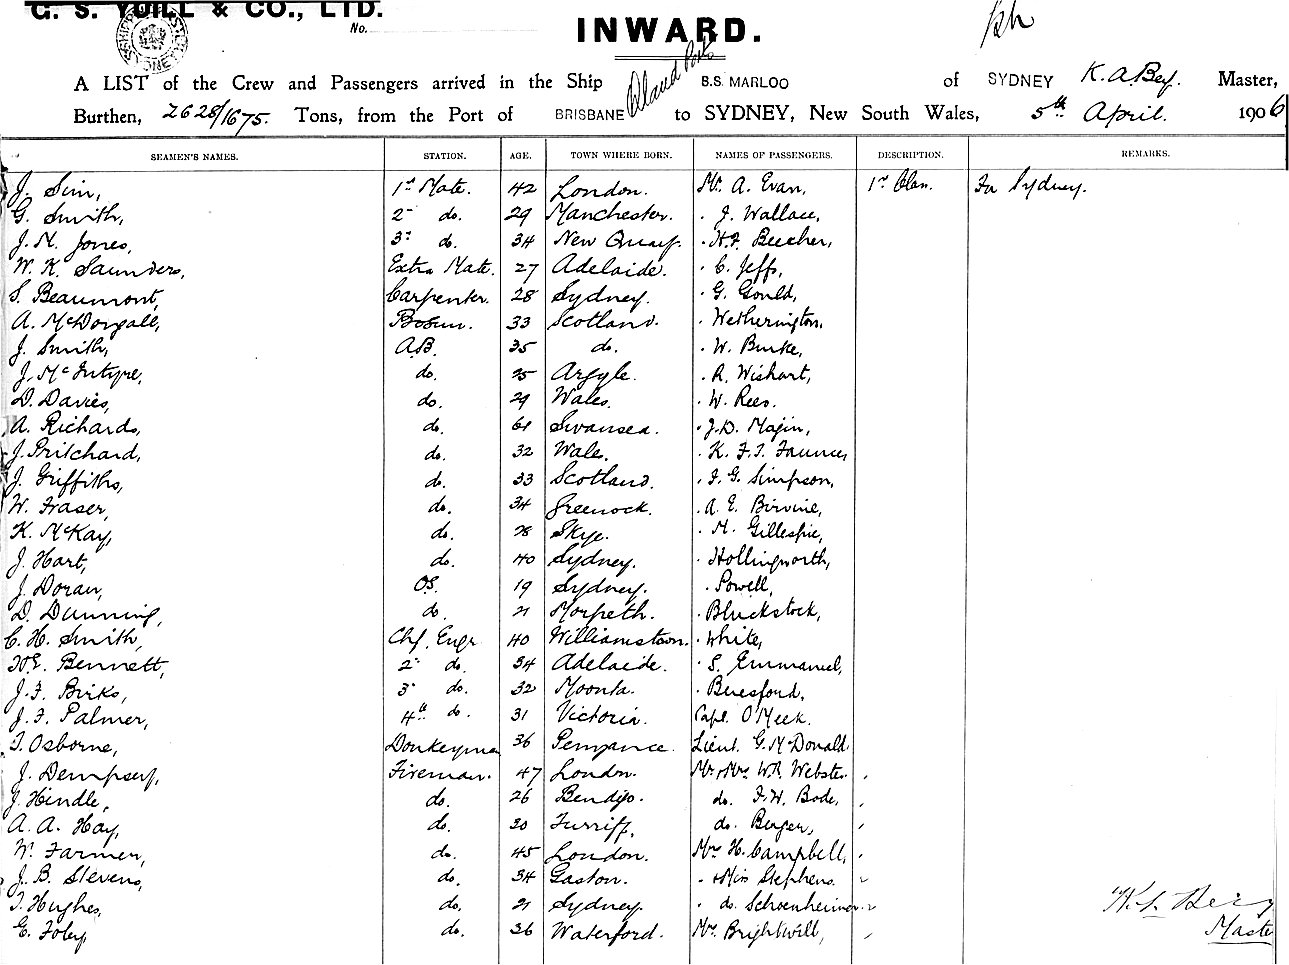 G. S. YUILL & CO., LTD.
No.
INWARD.
A LIST of the Crew and Passengers arrived in the Ship B.S. MARLOO of SYDNEY K. A. Bey. Master,
Burthen, 2628/1675. Tons, from the Port of BRISBANE to SYDNEY, New South Wales, 5th April. 1906
SEAMEN'S NAMES. STATION. AGE. TOWN WHERE BORN. NAMES OF PASSENGERS. DESCRIPTION. REMARKS.
J. Sim, 1st Mate. 42 London. Mr. A. Evan, 1st Clas. For Sydney.
G. Smith, 2 do. 29 Manchester. . J. Wallace,
J. M. Jones, 3 do. 34 New Quay. . H.F. Beecher,
W. K. Saunders, Extra Mate. 27 Adelaide. . C. Jeffs,
S. Beaumont, Carpenter. 28 Sydney. . G. Gould,
A. McDougall, Bosun. 33 Scotland. . Wetherington,
J. Smith, A.B. 35 do. . W. Burke,
J. McIntyre, do. 25 Argyle. . R. Wishart,
D. Davies, do. 29 Wales. . W. Rees.
A. Richards, do. 61 Swansea. . J.D. Majin,
J. Pritchard, do. 32 Wales. . K. F. T. Faunce,
J. Griffiths, do. 33 Scotland. . F. G. Simpson,
W. Fraser, do. 34 Greenock. . A. E. Birvine,
K. McKay, do. 28 Skye. . M. Gillespie,
J. Hart, do. 40 Sydney. . Hollingworth,
J. Doran, OS. 19 Sydney. . Powell,
D. Dunning, do. 21 Morpeth. . Bluckstock,
C. H. Smith, Chf. Engr 40 Williamstown. . White,
W.E. Bennett, 2 do. 34 Adelaide. . S. Emmanuel,
J. F. Birks, 3 do. 32 Moonta. . Beresford,
J. F. Palmer, 4th do. 31 Victoria. Capt. O'Meek.
T. Osborne, Donkeyman 36 Penzance. Lieut. G. McDonald
J. Dempsey, Fireman. 47 London. Mr. & Mrs. W.R. Webster.
J. Hindle, do. 26 Bendigo. do. F.W. Bode,
A. A. Hay, do. 30 Turriff, do. Berger,
W. Farmer, do. 45 London. Mrs H. Campbell,
J. B. Stevens, do. 34 Gaston. . & Miss Stephens.
T. Hughes, do. 21 Sydney. . do. Schoenheimer
E. Foley do. 36 Waterford. Mrs. Brightwell,
Master